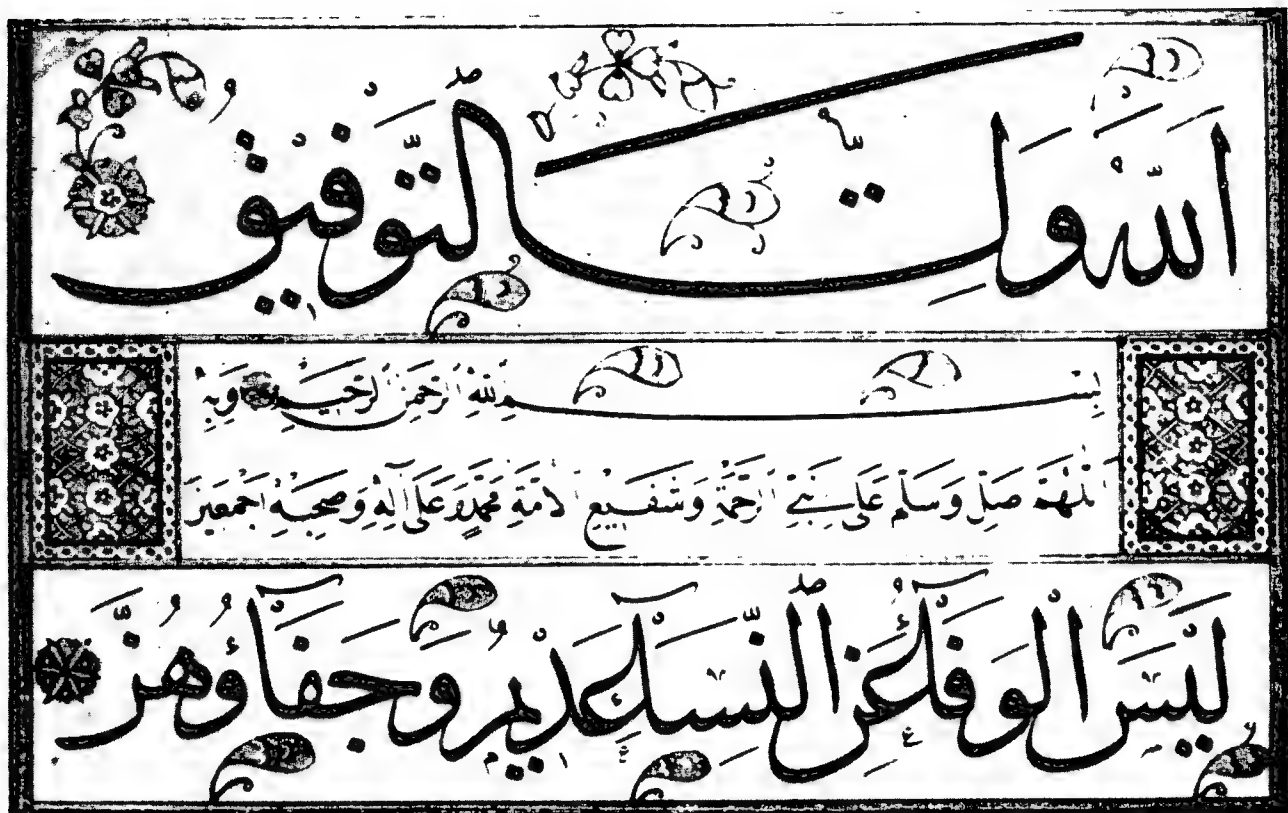 اَللّٰهُ وَلِيُّ التَّوْفِيْقُ
بِسْمِ اللّٰهِ الرَّحْمٰنِ الرَّحِيْمِ وَبِهِ
اَللّٰهُمَّ صَلِّ وَسَلِّمْ عَلَى نَبِيِّ الرَّحْمَةِ وَشَفِيْعِ الْأُمَّةِ مُحَمَّدٍ وَعَلَى آلِهِ وَصَحْبِهِ اَجْمَعِيْنَ
لَيْسَ الْوَفَآءُ عَنِ النِّسَآءِ عَدِيْمٌ وَجَفَآؤُهُنَّ